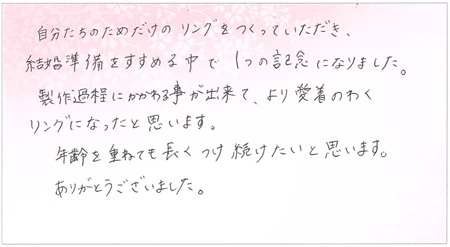 自分たちのためだけのリングをつくっていただき、
結婚準備をすすめる中で1つの記念になりました。
製作過程にかかわる事が出来て、より愛着のわく
リングになったと思います。
年齢を重ねても長くつけ続けたいと思います。
ありがとうございました。